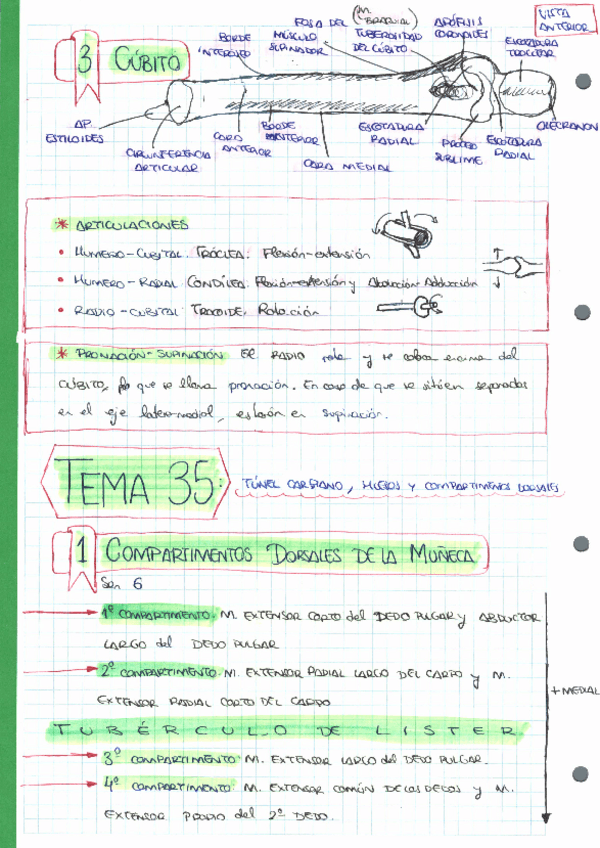 VISTA ANTERIOR
3 CÚBITO
BORDE INTERÓSEO
FOSA DEL MÚSCULO SUPINADOR
(M. BRAQUIAL)
TUBEROSIDAD DEL CÚBITO
APÓFISIS CORONOIDES
ESCOTADURA TROCLEAR
AP. ESTILOIDES
CIRCUNFERENCIA ARTICULAR
CARA ANTERIOR
BORDE ANTERIOR
CARA MEDIAL
ESCOTADURA RADIAL
PROCESO SUBLIME
ESCOTADURA RADIAL
OLECRANON
* ARTICULACIONES
• HUMERO-CUBITAL. TRÓCLEA. Flexión-extensión
• HUMERO-RADIAL CONDÍLEA. Flexión-extensión y Abducción-Adducción
• RADIO-CUBITAL TROCOIDE. Rotación
* PRONACIÓN-SUPINACIÓN El RADIO rota y se coloca encima del
CÚBITO, lo que se llama pronación. En caso de que se sitúen separados
en el eje latero-medial, estarán en supinación.
TEMA 35: TÚNEL CARPIANO, HUESOS Y COMPARTIMENTOS DORSALES
1 COMPARTIMENTOS DORSALES DE LA MUÑECA
Son 6
1º COMPARTIMENTO: M. EXTENSOR CORTO del DEDO PULGAR y ABDUCTOR
LARGO del DEDO PULGAR
2º COMPARTIMENTO: M. EXTENSOR RADIAL LARGO DEL CARPO y M.
EXTENSOR RADIAL CORTO DEL CARPO
+ MEDIAL
TUBÉRCULO DE LISTER
3º COMPARTIMENTO: M. EXTENSOR LARGO del DEDO PULGAR.
4º COMPARTIMENTO: M. EXTENSOR COMÚN DE LOS DEDOS y M.
EXTENSOR PROPIO del 2º DEDO.